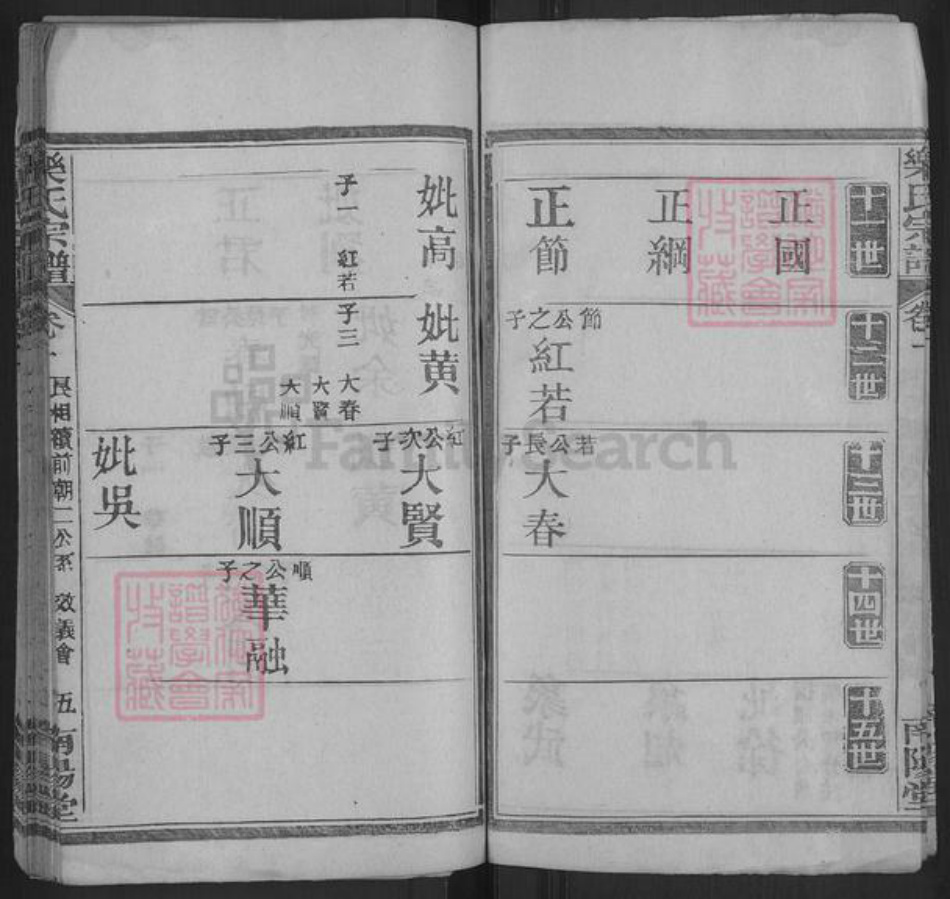 樂氏宗譜
卷一
南陽堂
十一世
十二世
十三世
十四世
十五世
正國
正綱
正節
節公之子
紅若
若公長子
大春
妣高
子一 紅若
妣黃
子三 大春 大賢 大順
紅公次子
大賢
紅公三子
大順
妣吳
順公之子
華融
樂氏宗譜
卷一
前朝二公系
效義會
五
南陽堂
FamilySearch